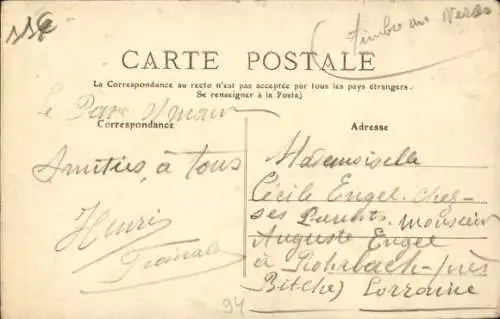 Timbre au Verso
CARTE POSTALE
La Correspondance au recto n'est pas acceptée par tous les pays étrangers.
Se renseigner à la Poste)
Le Parc
Correspondance
Adresse
Amitiés, à tous
Henri
Mademoiselle
Cécile Engel. chez
ses Parents. Monsieur
Auguste Engel
à Rohrbach-près
Bitche) Lorraine
94